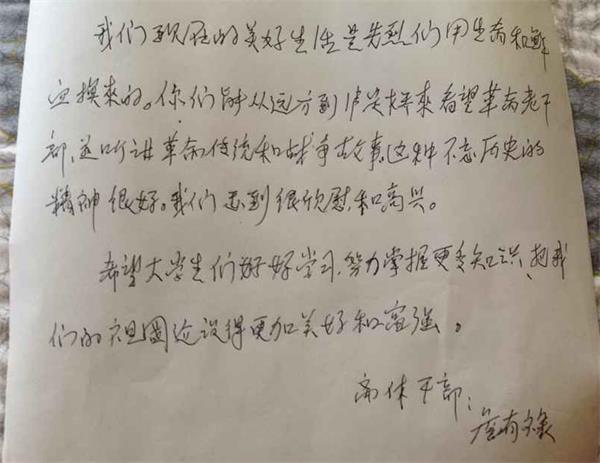 我们现在的美好生活是先烈们用生命和鲜
血换来的。你们能从远方到泸关坪来看望革命老干
部,并听讲革命传统和战争故事,这种不忘历史的
精神很好。我们感到很欣慰和高兴。
希望大学生们好好学习,努力掌握更多知识,把我
们的祖国建设得更加美好和富强。
离休干部:
有禄